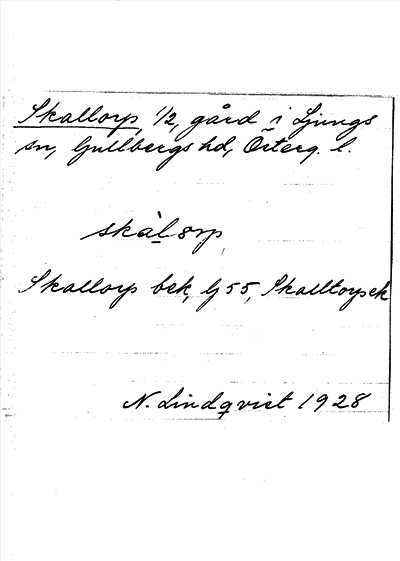 Skallorp, 1/2, gård i Ljungs
sn, Gullbergs hd, Österg. l.
skàlorp
Skallorp bek, Gj 55, Skalltorp ek
N. Lindqvist 1928